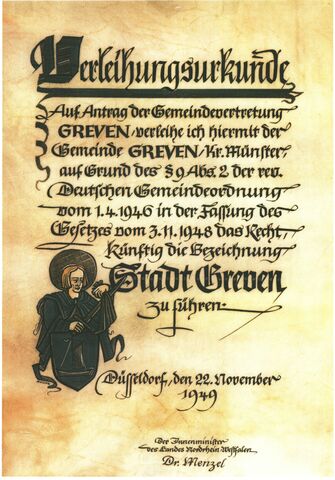 Verleihungsurkunde
Auf Antrag der Gemeindevertretung
GREVEN/verleihe ich hiermit der
Gemeinde GREVEN/Kr. Münster,
auf Grund des § 9 Abs. 2 der rev.
Deutschen Gemeindeordnung
vom 1.4.1946 in der Fassung des
Gesetzes vom 3.11.1948 das Recht,
künftig die Bezeichnung
Stadt Greven
zu führen.
Düsseldorf, den 22. November
1949
Der Innenminister
des Landes Nordrhein-Westfalen
Dr. Menzel